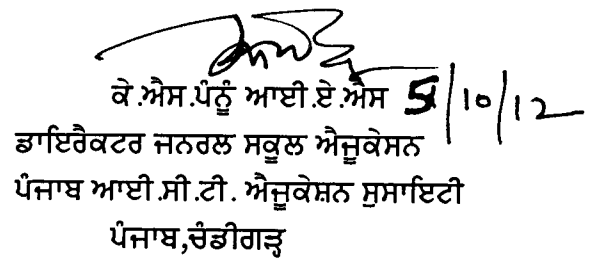 ਕੇ.ਐਸ.ਪੰਨੂੰ ਆਈ.ਏ.ਐਸ 5/10/12
ਡਾਇਰੈਕਟਰ ਜਨਰਲ ਸਕੂਲ ਐਜੂਕੇਸਨ
ਪੰਜਾਬ ਆਈ.ਸੀ.ਟੀ. ਐਜੂਕੇਸ਼ਨ ਸੁਸਾਇਟੀ
ਪੰਜਾਬ,ਚੰਡੀਗੜ੍ਹ